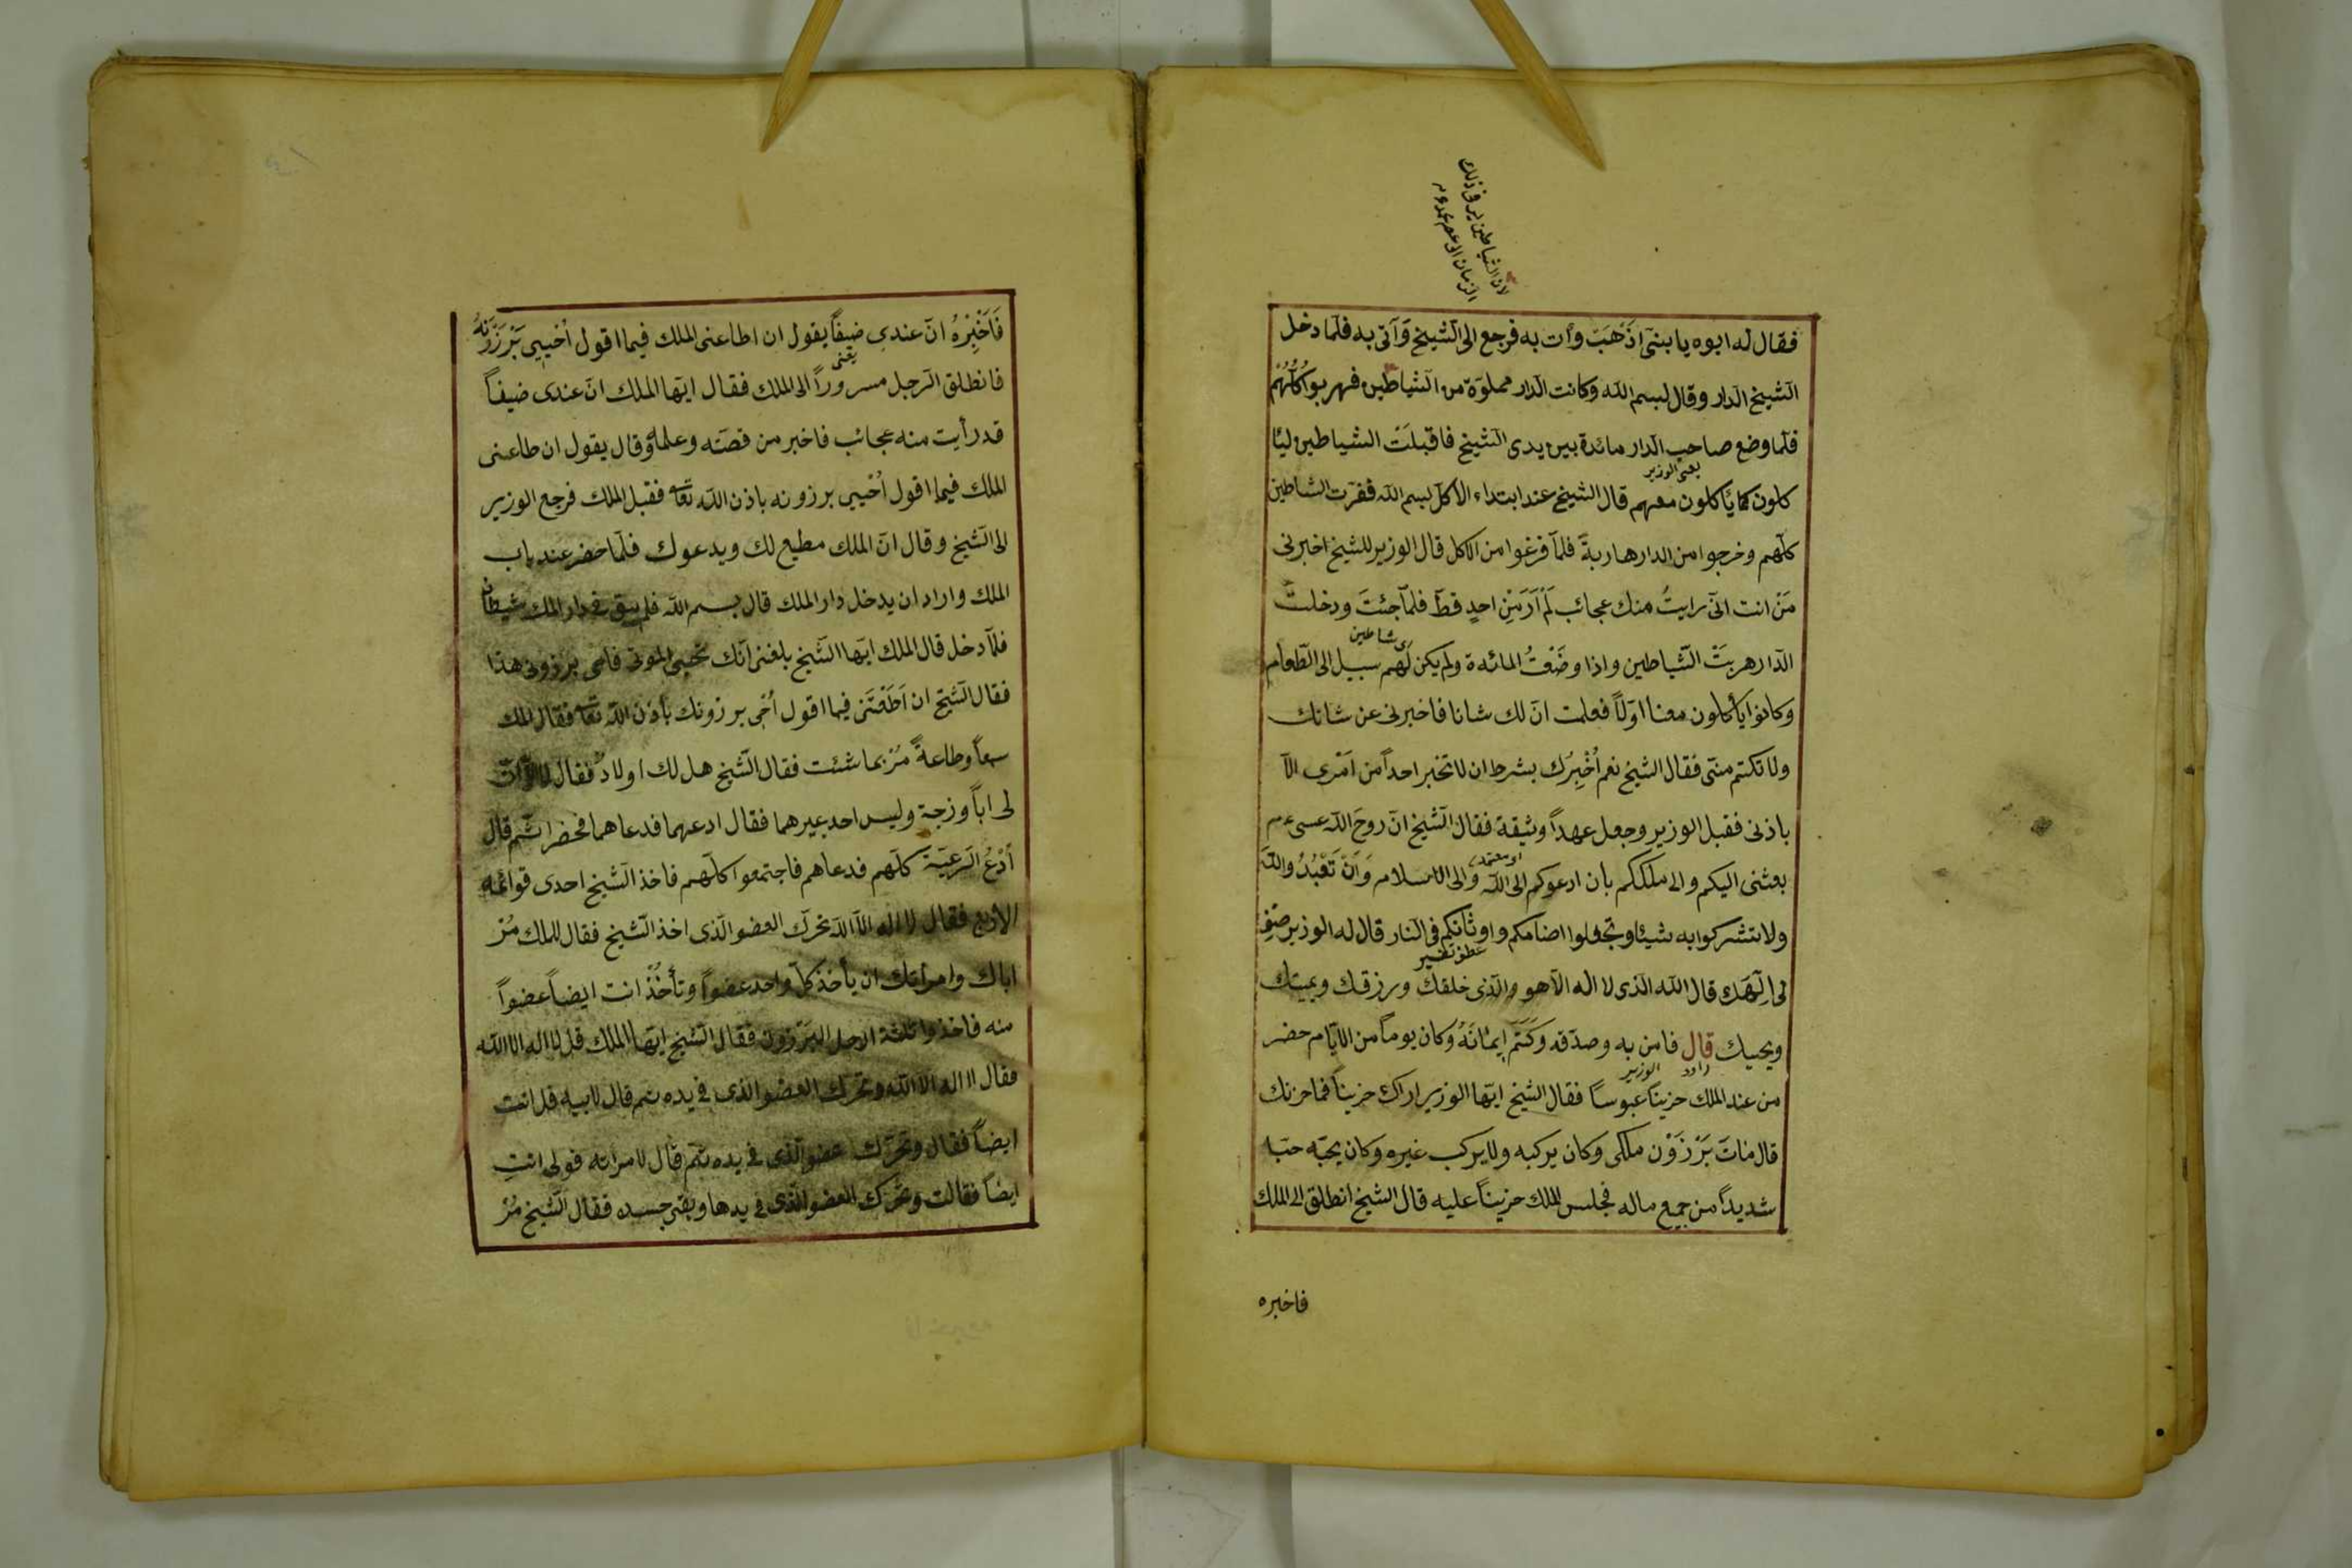 لان الشياطين يرى فى ذلك
الزمان الى عصر محمد عم
فقال له ابوه يا بنىّ اذهَبَ وأت به فرجع الى الشيخ وَآتى به فلمّا دخل
الشيخ الدار وقال بسم الله وكانت الدار مملوّة من الشياطين فهربوا كلُّهُم
فلمّا وضع صاحب الدار مائدة بين يدى الشيخ فاقبلَتْ الشياطين ليأ
يعنى الوزير
كلون كما يأكلون معهم قال الشيخ عند ابتداء الاكل بسم الله ففرّت الشياطين
كلّهم وخرجوا من الدار هاربةً فلمّا فرغوا من الاكل قال الوزير للشيخ اخبرنى
مَنْ انت انّى رايتُ منك عجائب لَمْ اَرَ مِنْ احدٍ قطّ فلمّا جئتَ ودخلتَ
اى شاطين
الدّار هربَتْ الشّياطين واذا وضَعْتُ المائدة ولم يكن لَهم سبيل الى الطّعام
وكانوا يأكلون معنا اوّلاً فعلمت انّ لك شانا فاخبرنى عن شانك
ولا تكتم منّى فقال الشيخ نعم اُخْبِرُك بشرط ان لا تخبر احداً من اَمْرى الّا
باذنى فقبل الوزير وجعل عهداً وثيقة فقال الشيخ انّ روحَ الله عسى عم
بعثنى اليكم والى ملككم بان ادعوكم الى الله والى الاسلام وَاَنْ تَعْبُدُوا اللهَ
ولا تشركوا به شيئا وتجعلوا اصنامكم واوثانكم فى النار قال له الوزير صِفْ
عطف تفسير
لى اِلٓهَك قال الله الذى لا اله الّا هو والّذى خلقك ورزقك ويميتك
ويحييك قال فامن به وصدّقه وَكَتَم اِيمَانَهُ وكان يوماً من الايّام حضر
الوزير
من عند الملك حزيناً عبوسًا فقال الشيخ ايّها الوزير اراك حزيناً فما حزنك
قال مَاتَ بَرْزَوْن ملكى وكان يركبه ولا يركب غيره وكان يحبّه حبّا
شديداً من جميع ماله فجلس الملك حزيناً عليه قال الشيخ انطلق الى الملك
فاخبره
فَاَخْبِرْهُ انّ عندى ضيفاً يقول ان اطاعنى الملك فيما اقول اُحْيِى بَرْزَوْنَهُ
يعنى
فانطلق الرّجل مسروراً الى الملك فقال ايّها الملك انّ عندى ضيفاً
قد رأيت منه عجائب فاخبر من قصّته وعلمه وقال يقول ان طاعنى
الملك فيما اقول اُحْيِى برزونه باذن الله تعا فقبل الملك فرجع الوزير
الى الشّيخ وقال انّ الملك مطيع لك ويدعوك فلمّا حضر عند باب
الملك واراد ان يدخل دار الملك قال بسم الله فلم يبق فى دار الملك شيطان
فلمّا دخل قال الملك ايّها الشّيخ بلغنى انّك تحيى الموتى فاحى برزونى هذا
فقال الشّيخ ان اَطَعْتَنى فيما اقول اُحْى برزونك باذن الله تعا فقال الملك
سمعاً وطاعةً مُرْ بما شئت فقال الشّيخ هل لك اولادٌ فقال لا وانّ
لى اباً وزجة وليس احد غيرهما فقال ادعهما فدعاهما فحضرا ثم قال
اُدْعُ الرّعيّة كلّهم فدعاهم فاجتمعوا كلّهم فاخذ الشّيخ احدى قوائمه
الاربع فقال لا اله الّا الله تحرّك العضو الّذى اخذ الشّيخ فقال للملك مُرْ
اباك وامرأتك ان يأخذ كلّ واحد عضواً وتأخُذْ انت ايضاً عضواً
منه فاخذوا ثلثة ارجل البَرْزون فقال الشّيخ ايّها الملك قل لا اله الا الله
فقال لا اله الا الله وتحرّك العضو الذى فى يده ثم قال لابيه قل انت
ايضاً فقال وتحرّك عضو الّذى فى يده ثم قال لامرأته قولى انتِ
ايضاً فقالت وتحرّك العضو الّذى فى يدها وبقى جسده فقال الشّيخ مُرْ